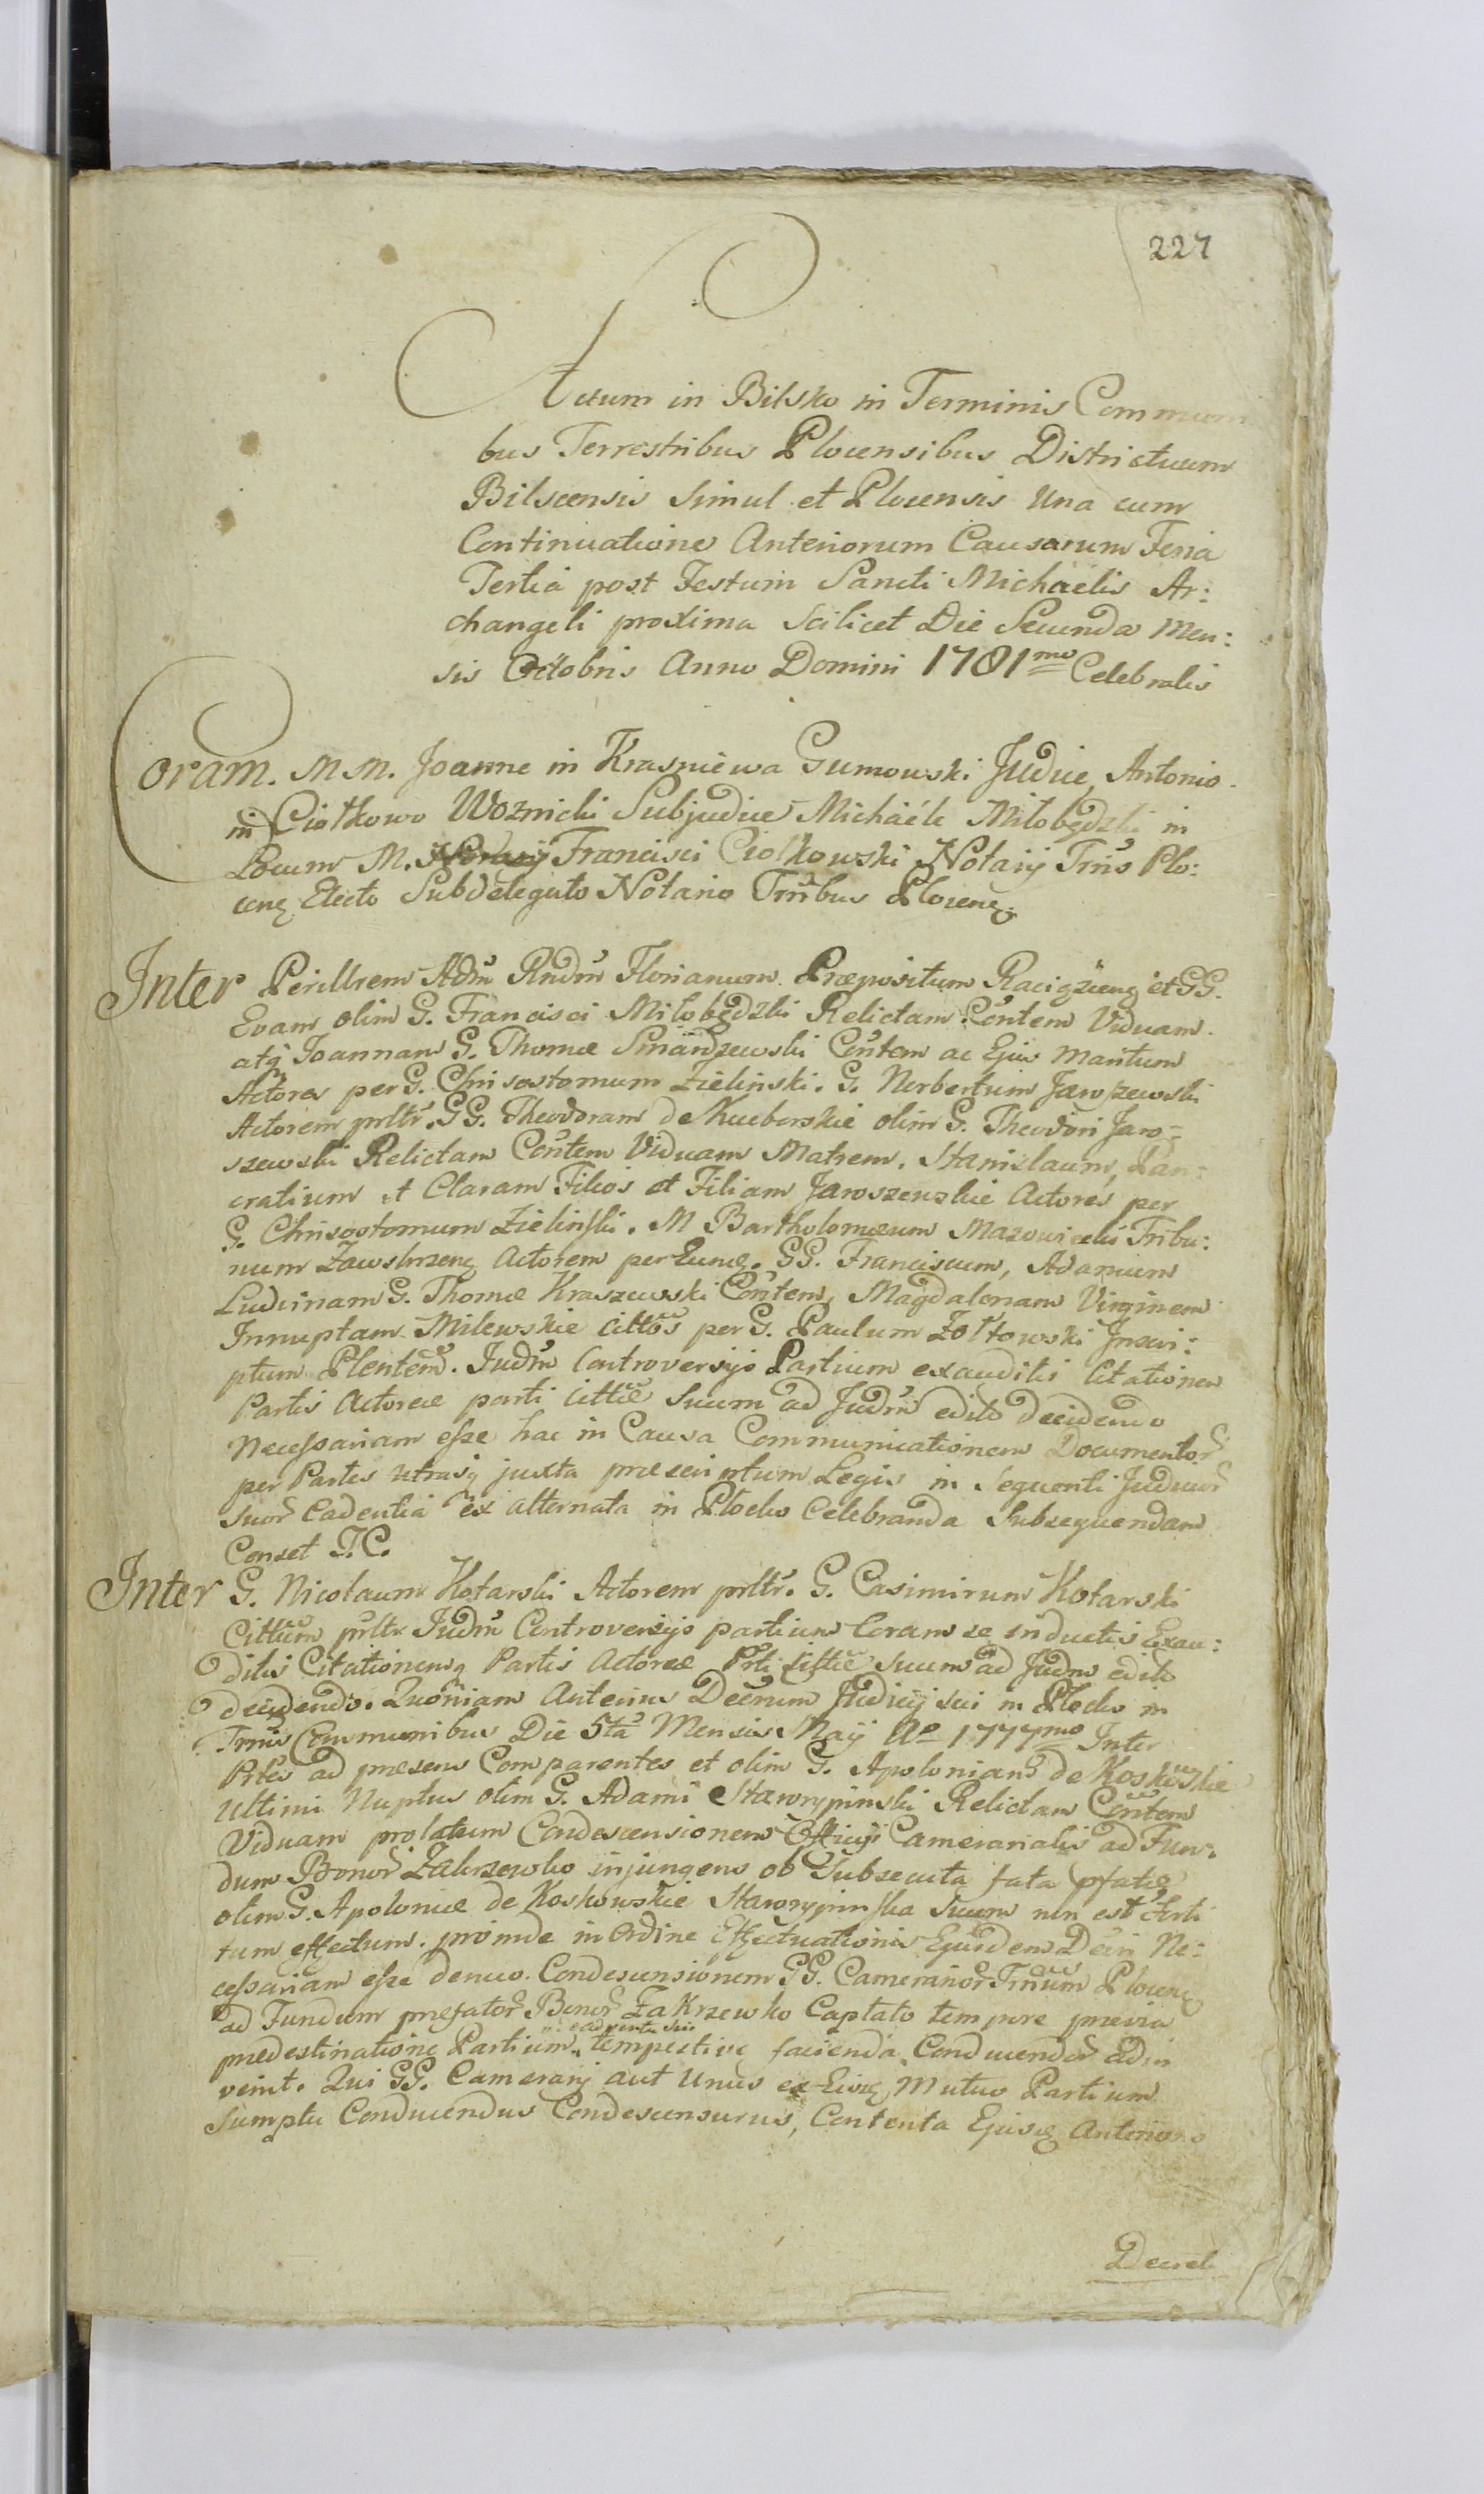 227
Actum in Bilsko in Terminis Communi
bus Terrestribus Plocensibus Districtuum
Bilscensis Simul et Plocensis Una cum
Continuatione Anteriorum Causarum Feria
Tertia post Festum Sancti Michaelis Ar:
changeli proxima Scilicet Die Secunda Men:
sis Octobris Anno Domini 1781mo Celebratis
Coram. M M. Joanne in Krasniewa Gumowski Judice, Antonio
in Ciołkowo Woznicki Subjudice Michaele Miłobędzki in
Locum M. Francisci Ciołkowski Notarij Trris Plo:
cenς Electo Subdelegato Notario Trribus Plocenς.
Inter Perillrem Adm Rndm Florianum Præpositum Raciązenς et GG.
Evam olim G. Francisci Miłobędzki Relictam Cõntem Viduam
atq Joannam G. Thomæ Smardzewski Cõntem ac Ejus Maritum
Actores per G. Chrisostomum Zielinski. G. Norbertum Jaroszewski
Actorem prltr. GG. Theodoram de Kucborskie olim G. Theodori Jaro=
szewski Relictam Cõntem Viduam Matrem, Stanislaum, Pan=
cratium et Claram Filios et Filiam Jaroszewskie Actores per
G. Chrisostomum Zielinski. M Bartholomæum Mazowiecki Tribu:
num Zawskrzenς Actorem per Eumς. GG. Franciscum, Adamum
Ludvinam G. Thomæ Kraszewski Cõntem, Magdalenam Virginem
Innuptam Milewskie Cittos per G. Paulum Zółtowski Inscri:
ptum Plentem. Judm Controversijs Partium exauditis Citationem
Partis Actoreæ parti Cittæ Suum ad Judm edito decidendo
Necessariam esse hac in Causa Communicationem Documentor
per Partes utrasq juxta præscriptum Legis in Sequenti Judicior
Suor Cadentia ex alternata in Płocko Celebranda Subsequendam
Censet J. C.
Inter G. Nicolaum Kotarski Actorem prltr. G. Casimirum Kotarski
Cittum prltr Judm Controversijs partium Coram se inductis Exau:
ditis Citationemq Partis Actoreæ Prti Cittæ Suum ad Judm edito
decidendo. Quoniam Anterius Decrum Judicij sui in Płocko in
Trmis Communibus Die 5ta Mensis Maij Ao 1777mo Inter
Prtes ad præsens Comparentes et olim G. Apoloniam de Koskowskie
Ultimi Nuptus olim G. Adami Staworypinski Relictam Cõntem
Viduam prolatum Condescensionem Officij Camerarialis ad Fun=
dum Bonor Zakrzewko injungens ob Subsecuta fata pfatæ
olim G. Apoloniæ de Koskowskie Staworypinska Suum non est Sorti
tum effectum. proinde in Ordine Effectuationis Ejusdem Decri Ne:
cessariam esse denuo Condescensionem GG. Camerarior Trrium Plocenς
ad Fundum præfator Bonor Zakrzewko Captato tempore prævia
prædestinatione Partium tempestive facienda Conducendor adin
venit. Qui GG. Camerarij aut Unus ex Eisς Mutuo Partium
Sumptu Conducendus Condescensurus, Contenta Ejusς Anterioris
Decreti